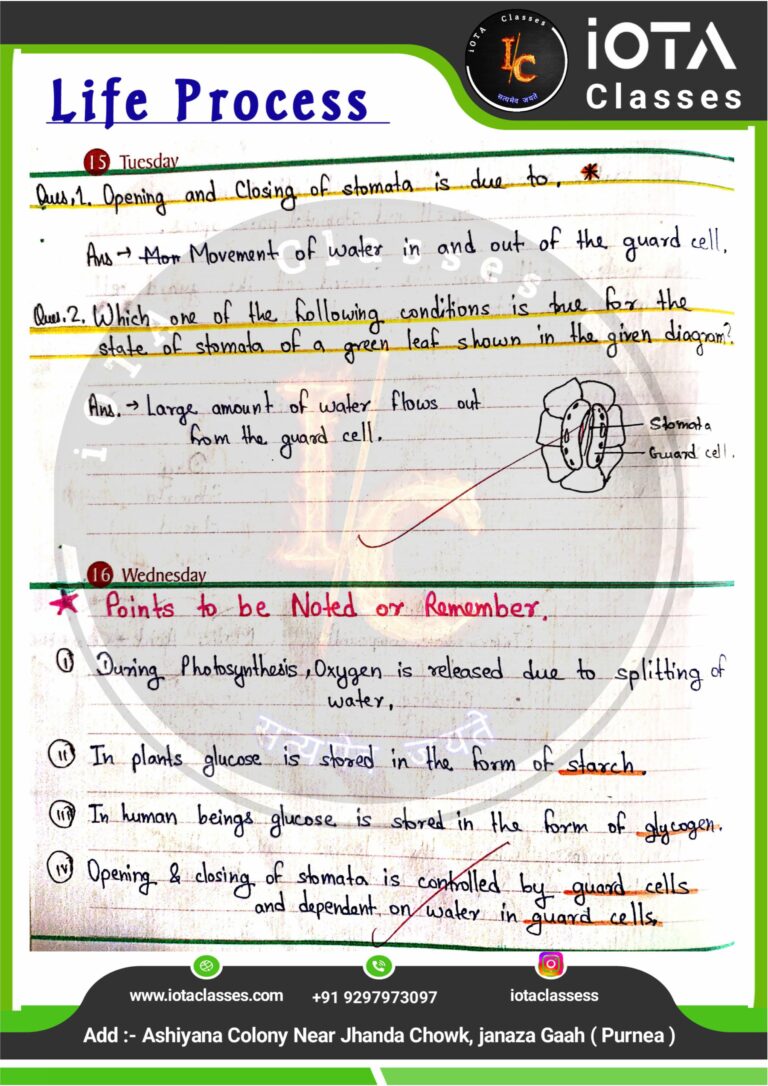 iOTA Classes
I/C
सत्यमेव जयते
iOTA
Classes
Life Process
15 Tuesday
Ques.1. Opening and Closing of stomata is due to. *
Ans → Mon Movement of water in and out of the guard cell.
Ques.2. Which one of the following conditions is true for the
state of stomata of a green leaf shown in the given diagram?
Ans. → Large amount of water flows out
from the guard cell.
Stomata
Guard cell.
iOTA Classes
I/C
सत्यमेव जयते
16 Wednesday
★ Points to be Noted or Remember.
(i) During Photosynthesis, Oxygen is released due to splitting of
water.
(ii) In plants glucose is stored in the form of starch.
(iii) In human beings glucose is stored in the form of glycogen.
(iv) Opening & closing of stomata is controlled by guard cells
and dependent on water in guard cells.
www.iotaclasses.com
+91 9297973097
iotaclassess
Add :- Ashiyana Colony Near Jhanda Chowk, janaza Gaah ( Purnea )